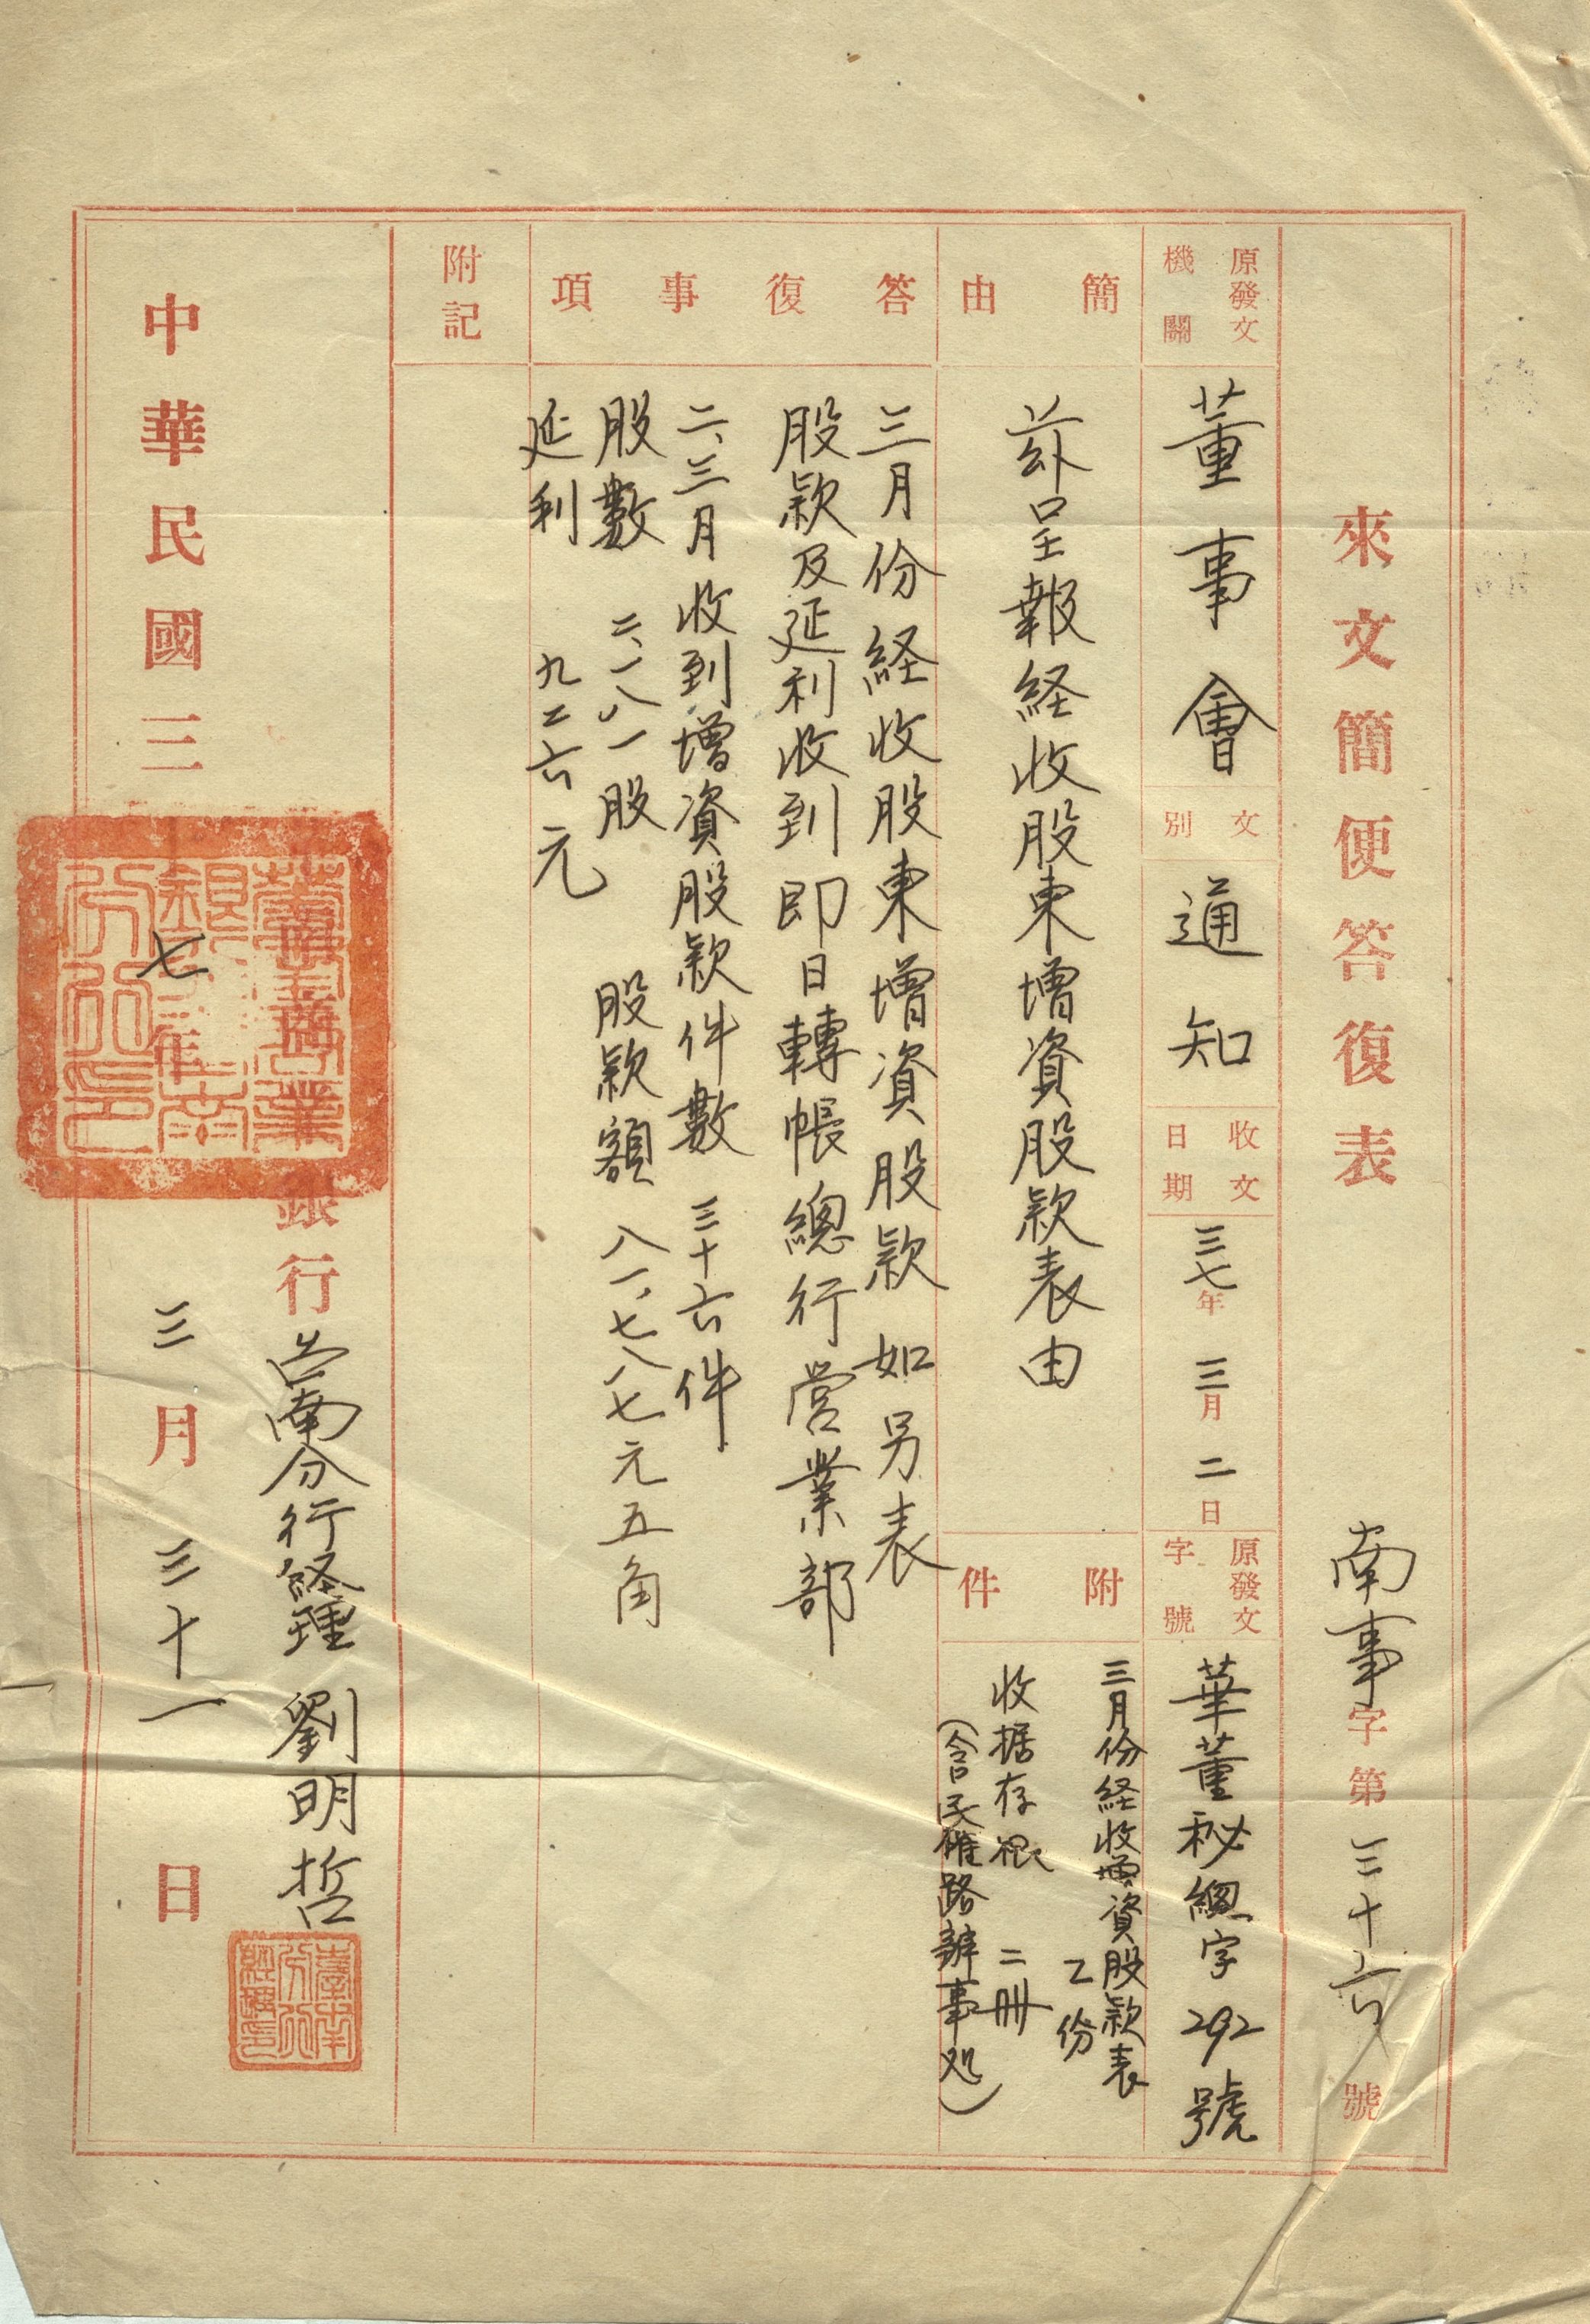 來文簡便答復表
南事字第三十六號
原發文機關
董事會
文別
通知
收文日期
三七年三月二日
原發文字號
華董秘總字292號
簡由
茲呈報経收股東增資股款表由
附件
三月份経收增資股款表
乙份
收據存根 二冊
(含民權路辦事処)
答復事項
三月份経收股東增資股款如另表
股款及延利收到即日轉帳總行營業部
二、三月收到增資股款件數 三十六件
股數 二、一八一股 股款額 八一、七八七元五角
延利 九二六元
附記
銀行台南分行経理 劉明哲
中華民國三七年三月三十一日
臺南分行經理之印